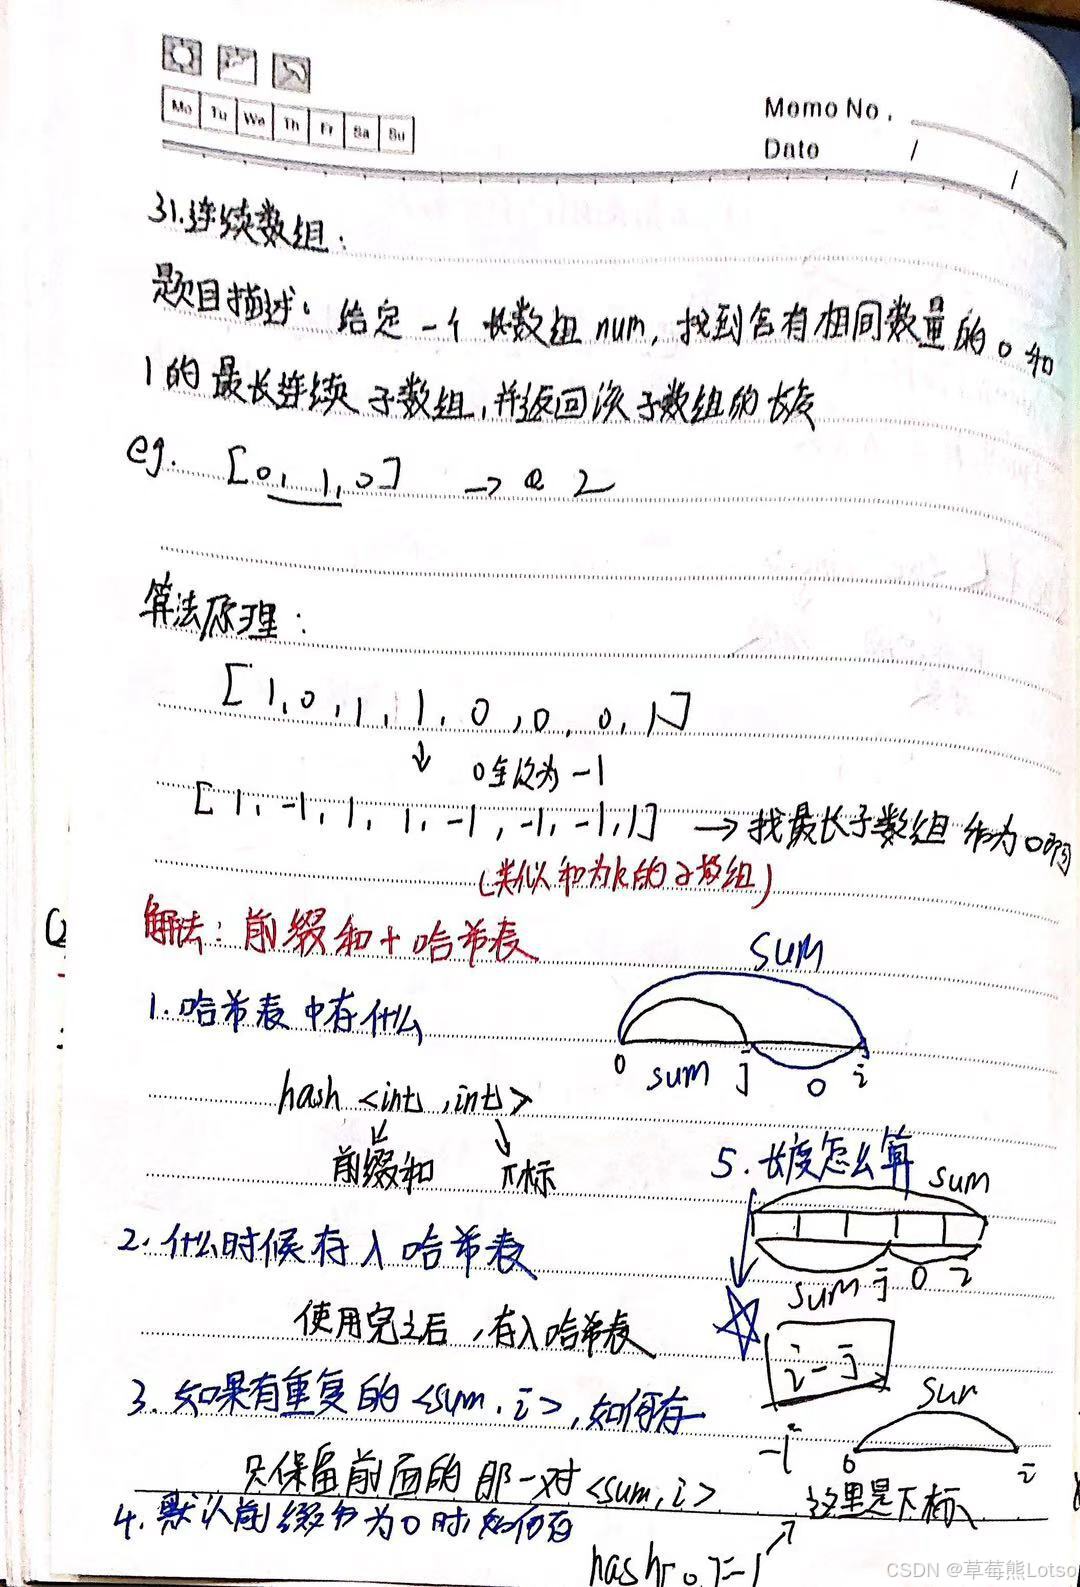 Mo Tu We Th Fr Sa Su
Memo No.
Date / /
31.连续数组:
题目描述: 给定一个 数组 num, 找到含有相同数量的 0 和
1 的 最长连续 子数组,并返回该子数组的长度
eg. [0, 1, 0] → 2
算法原理:
[1, 0, 1, 1, 0, 0, 0, 1]
↓ 0全改为 -1
[1, -1, 1, 1, -1, -1, -1, 1] → 找最长子数组 和为0
(类似和为k的子数组)
解法: 前缀和+哈希表
1. 哈希表中存什么
sum
0 sum j 0 i
hash <int, int>
前缀和 下标
2. 什么时候存入哈希表
使用完之后, 存入哈希表
3. 如果有重复的<sum, i>, 如何存
只保留前面的那一对<sum, i>
4. 默认前缀和为0时,如何存
hash[0]=-1
5. 长度怎么算
sum
sum j 0 i
i-j
sum
-1 0 i
这里是下标
CSDN @草莓熊Lotso